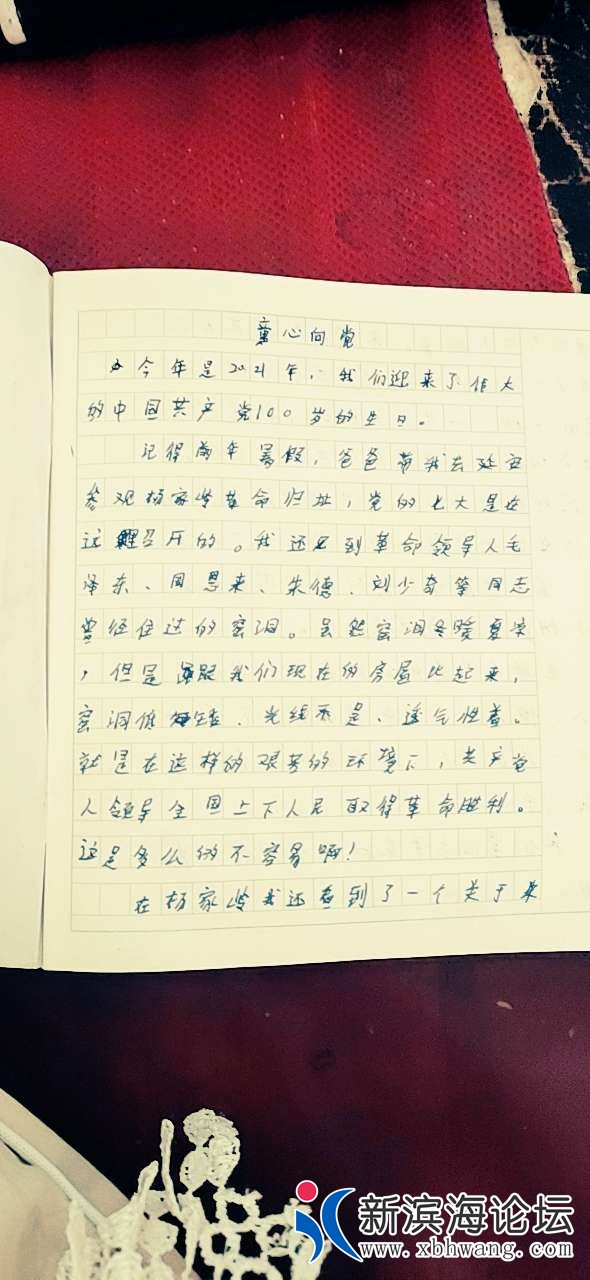 童心向党
今年是2021年，我们迎来了伟大
的中国共产党100岁的生日。
记得前年暑假，爸爸带我去延安
参观杨家岭革命旧址，党的七大是在
这里召开的。我还见到革命领导人毛
泽东、周恩来、朱德、刘少奇等同志
曾经住过的窑洞。虽然窑洞冬暖夏凉
，但是跟我们现在的房屋比起来，
窑洞低矮、光线不足、透气性差。
就是在这样的艰苦的环境下，共产党
人领导全国上下人民取得革命胜利。
这是多么的不容易啊！
在杨家岭我还看到了一个关于朱
新滨海论坛
www.xbhwang.com